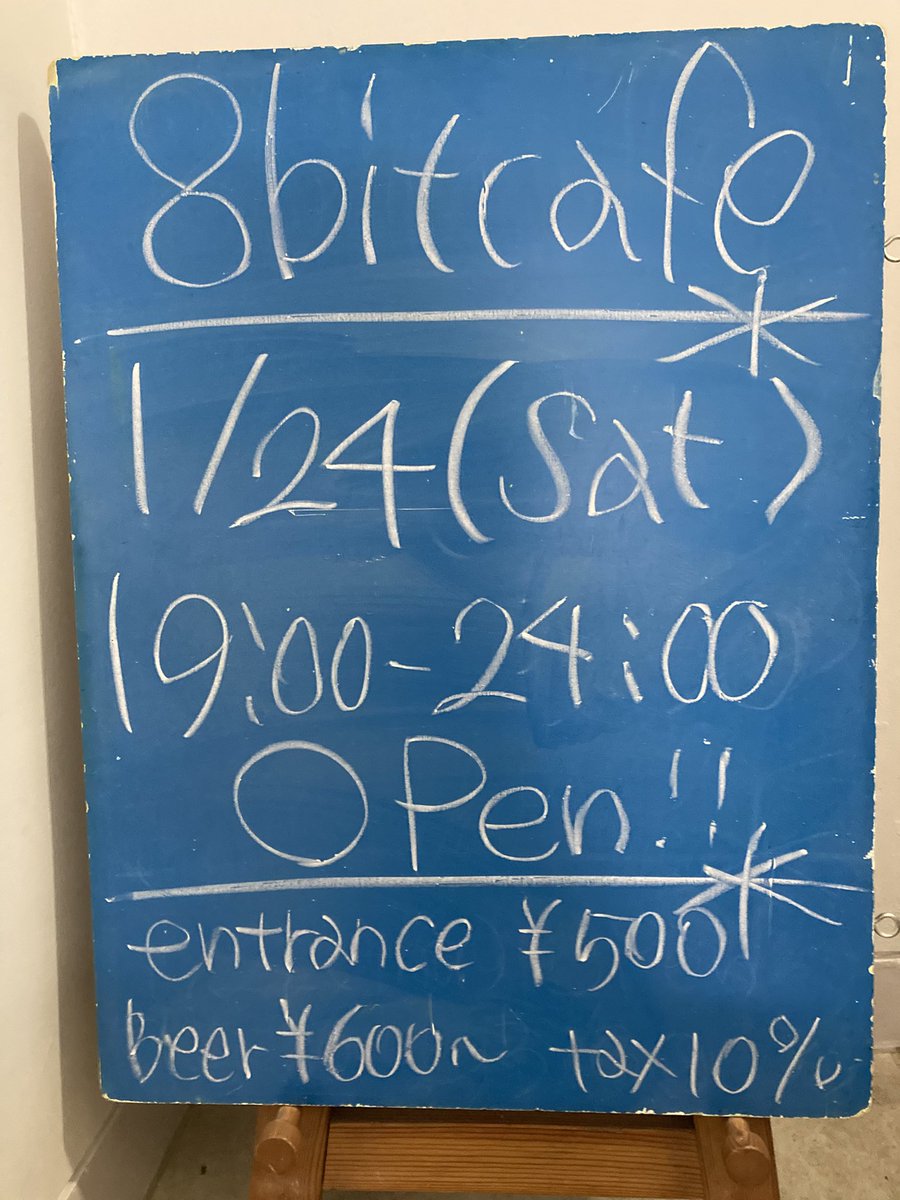 8bitcafe
1/24(Sat)
19:00-24:00
OPen!!
entrance ¥500
Beer ¥600~ tax10%